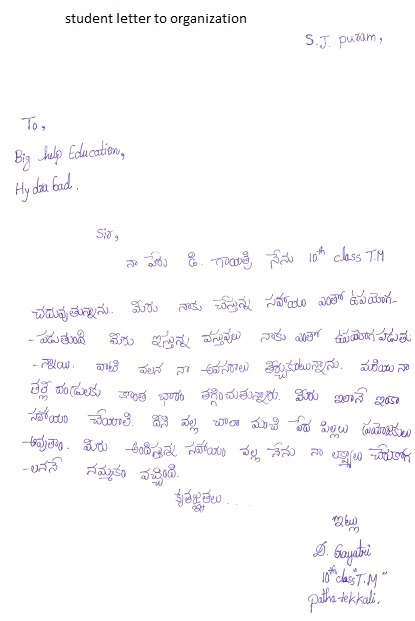 student letter to organization
S.J. puram,
To,
Big help Education,
Hydrabad.
Sir,
నా పేరు డి. గాయత్రి నేను 10th class T.M
చదువుతున్నాను. మీరు నాకు చేస్తున్న సహాయం ఎంతో ఉపయోగ-
-పడుతుంది మీరు ఇస్తున్న వస్తువులు నాకు ఎంతో ఉపయోగపడుతు
-న్నాయి. వాటి వలన నా అవసరాలు తీర్చుకుంటున్నాను. మరియు నా
తల్లి దండ్రులకు కొంత భారం తగ్గించుతున్నారు. మీరు ఇలానే ఇంకా
సహాయం చేయాలి. దీని వల్ల చాలా మంది పేద పిల్లలు ప్రయోజకులు
-అవుతాం. మీరు అందిస్తున్న సహాయం వల్ల నేను నా లక్ష్యాలు చేరుకోగ
-లననే నమ్మకం వచ్చింది.
కృతజ్ఞతలు...
ఇట్లు
D. Gayatri
10th class "T.M"
patha-tekkali.